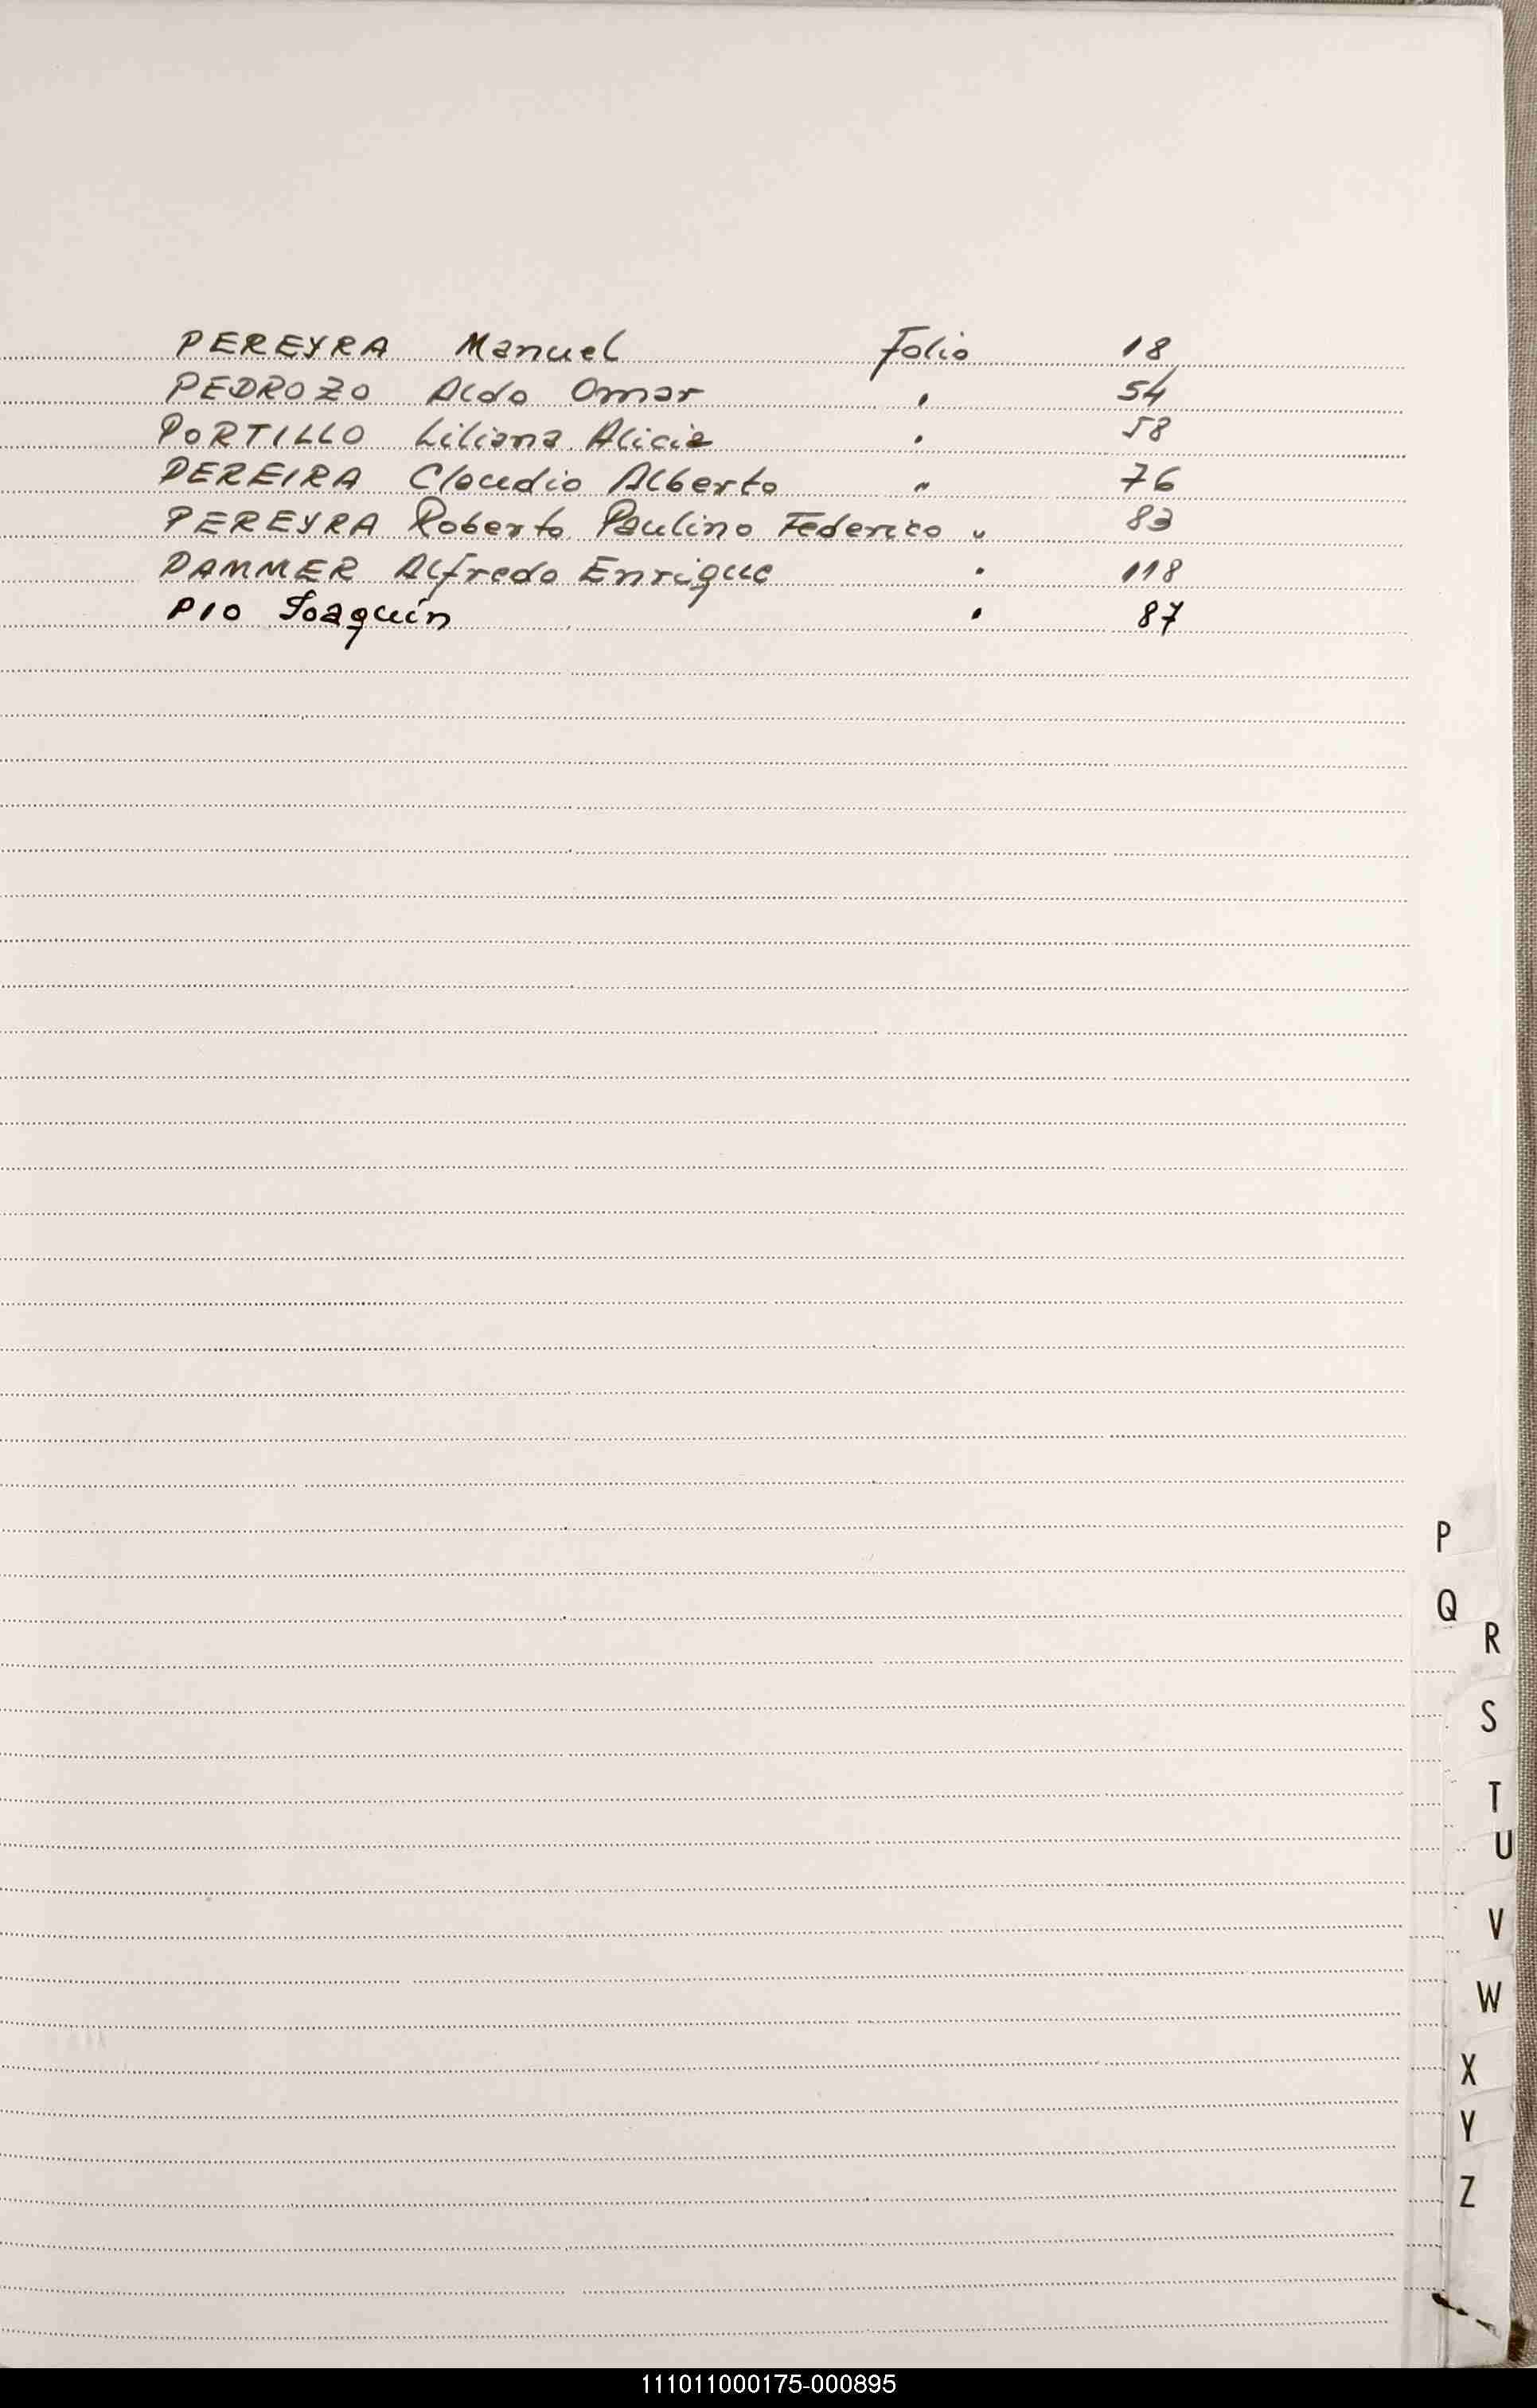 PEREYRA Manuel Folio 18
PEDROZO Aldo Omar " 54
PORTILLO Liliana Alicia " 58
PEREIRA Claudio Alberto " 76
PEREYRA Roberto Paulino Federico " 83
PAMMER Alfredo Enrique " 118
PIO Joaquín " 87
P
Q
R
S
T
U
V
W
X
Y
Z
111011000175-000895